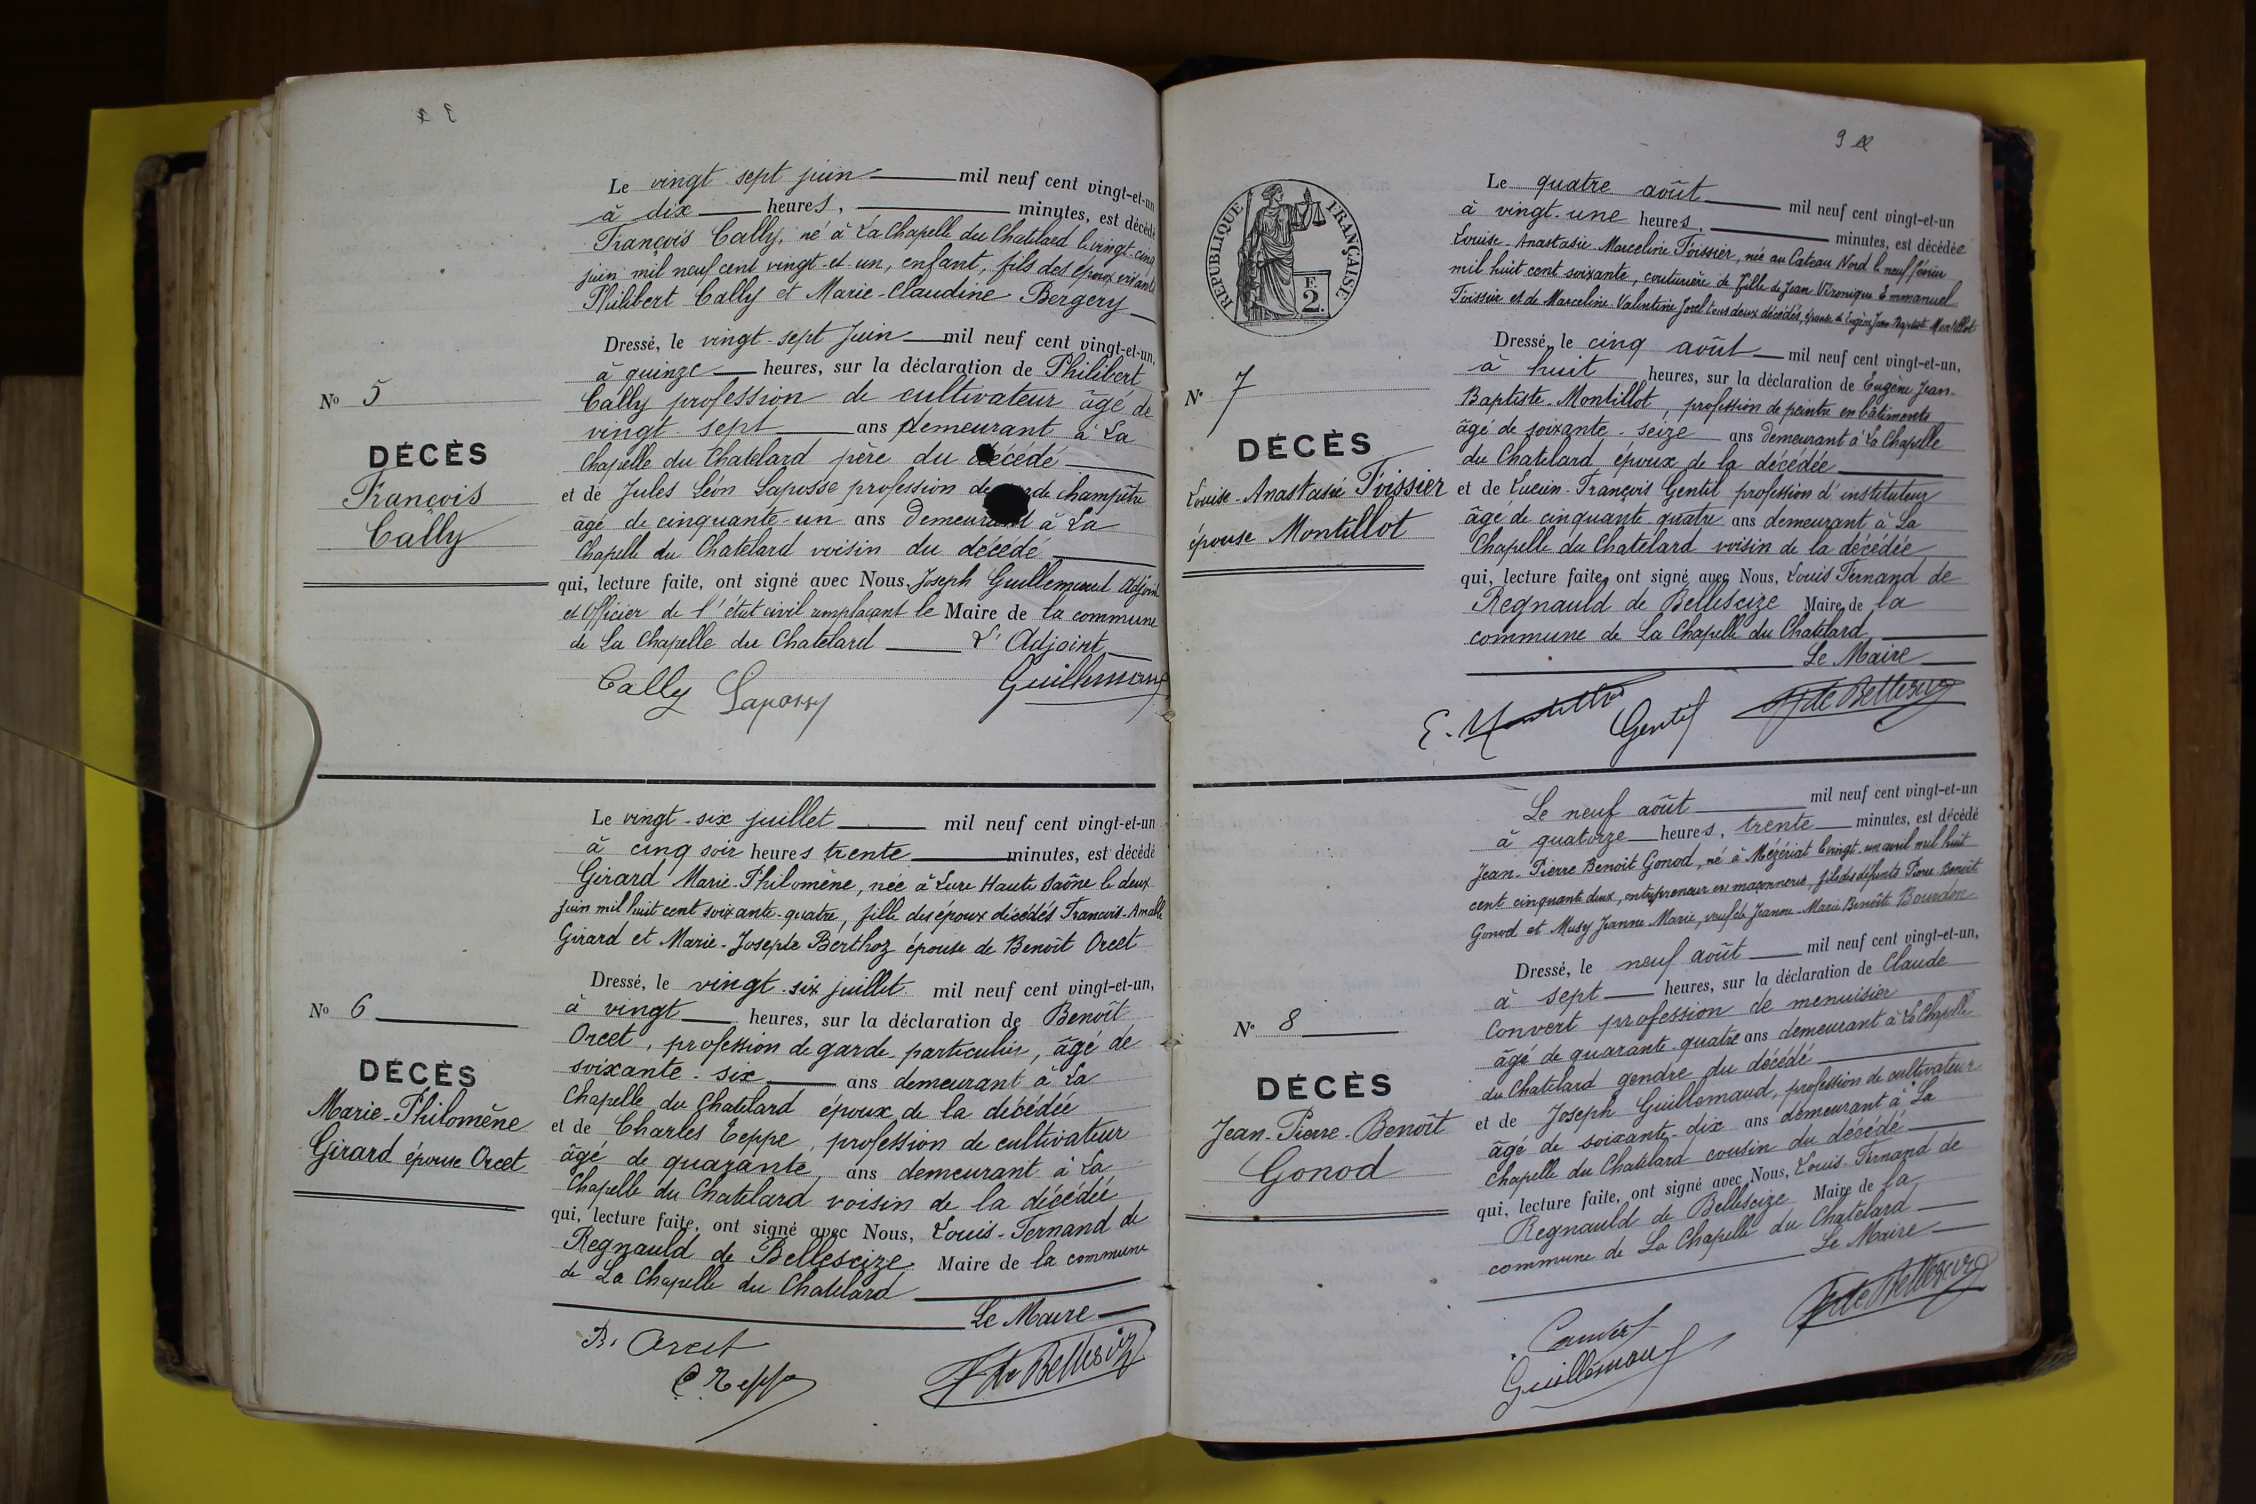 Le vingt sept juin mil neuf cent vingt-et-un
à dix heures, minutes, est décédé
François Cally, né à La Chapelle du Chatelard le vingt-cinq
juin mil neuf cent vingt-et-un, enfant, fils des époux vivants
Philibert Cally et Marie-Claudine Bergery
Dressé, le vingt-sept Juin mil neuf cent vingt-et-un,
à quinze heures, sur la déclaration de Philibert
Cally profession de cultivateur âgé de
vingt sept ans demeurant à La
Chapelle du Chatelard père du décédé
et de Jules Léon Laposse profession de champêtre
âgé de cinquante-un ans demeurant à La
Chapelle du Chatelard voisin du décédé
qui, lecture faite, ont signé avec Nous, Joseph Guillemaud Adjoint
et Officier de l'état civil remplaçant le Maire de la commune
de La Chapelle du Chatelard L'Adjoint
Cally Laposse Guillemaud
No 5
DÉCÈS
François
Cally
Le vingt-six juillet mil neuf cent vingt-et-un
à cinq soir heures trente minutes, est décédé
Girard Marie-Philomène, née à Lure Haute Saône le deux
juin mil huit cent soixante-quatre, fille des époux décédés François-Amable
Girard et Marie-Josephte Berthoz épouse de Benoît Orcet
Dressé, le vingt-six juillet mil neuf cent vingt-et-un,
à vingt heures, sur la déclaration de Benoît
Orcet, profession de garde particulier, âgé de
soixante-six ans demeurant à La
Chapelle du Chatelard époux de la décédée
et de Charles Teppe, profession de cultivateur
âgé de quarante ans demeurant à La
Chapelle du Chatelard voisin de la décédée
qui, lecture faite, ont signé avec Nous, Louis-Fernand de
Regnauld de Bellescize Maire de la commune
de La Chapelle du Chatelard
Le Maire
B. Orcet
C. Teppe
F de Bellescize
No 6
DÉCÈS
Marie-Philomène
Girard épouse Orcet
9
RÉPUBLIQUE FRANÇAISE
F.
2.
Le quatre août mil neuf cent vingt-et-un
à vingt-une heures, minutes, est décédée
Louise-Anastasie-Marceline Foissier, née au Cateau Nord le neuf février
mil huit cent soixante, couturière de fille de Jean Véronique Emmanuel
Foissier et de Marceline Valentine Jorel tous deux décédés, épouse de Eugène Jean-Baptiste Montillot
Dressé, le cinq août mil neuf cent vingt-et-un,
à huit heures, sur la déclaration de Eugène Jean-
Baptiste-Montillot, profession de peintre en bâtiments
âgé de soixante-seize ans demeurant à La Chapelle
du Chatelard époux de la décédée
et de Lucien-François Gentil profession d'instituteur
âgé de cinquante quatre ans demeurant à La
Chapelle du Chatelard voisin de la décédée
qui, lecture faite, ont signé avec Nous, Louis Fernand de
Regnauld de Bellescize Maire de la
commune de La Chapelle du Chatelard
Le Maire
E. Montillot Gentil F de Bellescize
No 7
DÉCÈS
Louise-Anastasie Foissier
épouse Montillot
Le neuf août mil neuf cent vingt-et-un
à quatorze heures, trente minutes, est décédé
Jean-Pierre Benoît Gonod, né à Mézériat le vingt-un avril mil huit
cent cinquante deux, entrepreneur en maçonnerie, fils des défunts Pierre Benoît
Gonod et Musy Jeanne Marie, veuf de Jeanne-Marie Benoîte Bourdon
Dressé, le neuf août mil neuf cent vingt-et-un,
à sept heures, sur la déclaration de Claude
Convert profession de menuisier
âgé de quarante-quatre ans demeurant à La Chapelle
du Chatelard gendre du décédé
et de Joseph Guillemaud, profession de cultivateur
âgé de soixante-dix ans demeurant à La
Chapelle du Chatelard cousin du décédé
qui, lecture faite, ont signé avec Nous, Louis-Fernand de
Regnauld de Bellescize Maire de la
commune de La Chapelle du Chatelard
Le Maire
Convert
Guillemaud
F de Bellescize
No 8
DÉCÈS
Jean-Pierre-Benoît
Gonod